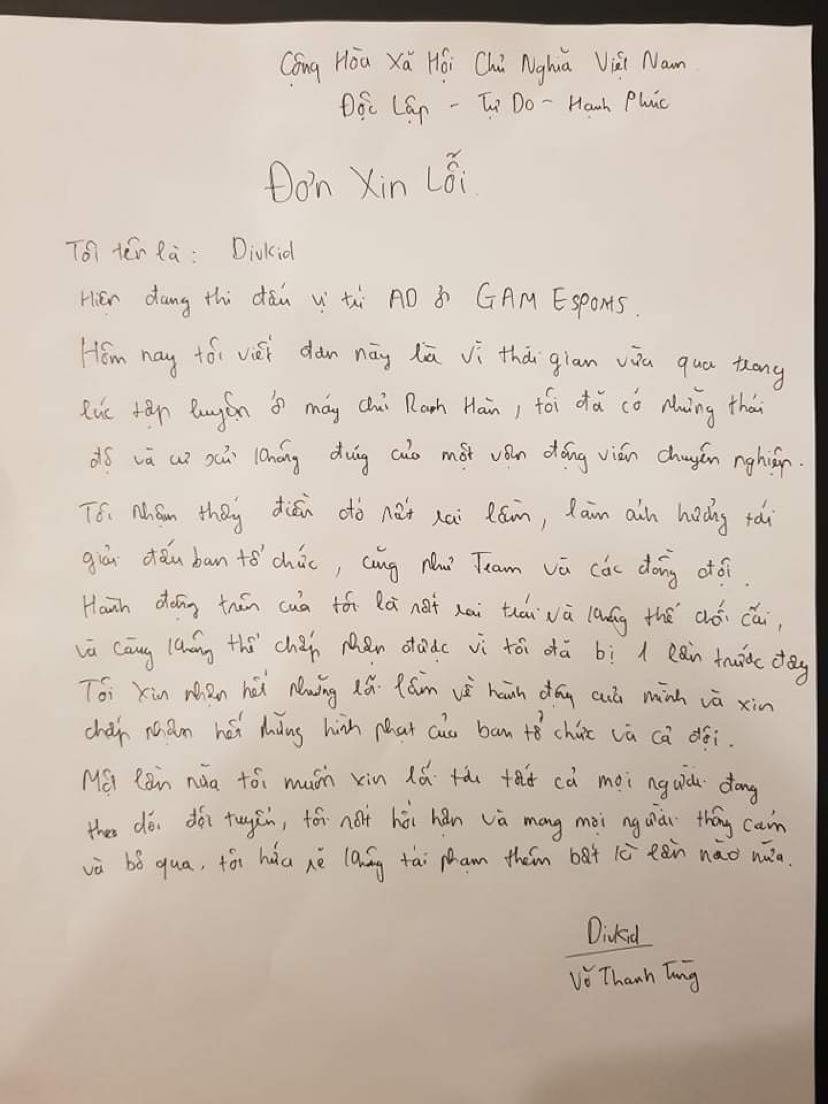 Cộng Hòa Xã Hội Chủ Nghĩa Việt Nam
Độc Lập - Tự Do - Hạnh Phúc
Đơn Xin Lỗi
Tôi tên là : Divkid
Hiện đang thi đấu vị trí AD ở GAM Esports.
Hôm nay tôi viết đơn này là vì thời gian vừa qua trong
lúc tập luyện ở máy chủ Rank Hàn, tôi đã có những thái
độ và cư xử không đúng của một vận động viên chuyên nghiệp.
Tôi nhận thấy điều đó rất sai lầm, làm ảnh hưởng tới
giải đấu ban tổ chức, cũng như Team và các đồng đội.
Hành động trên của tôi là rất sai trái và không thể chối cãi,
và càng không thể chấp nhận được vì tôi đã bị 1 lần trước đây
Tôi xin nhận hết những lỗi lầm về hành động của mình và xin
chấp nhận hết những hình phạt của ban tổ chức và cả đội.
Một lần nữa tôi muốn xin lỗi tới tất cả mọi người đang
theo dõi đội tuyển, tôi rất hối hận và mong mọi người thông cảm
và bỏ qua. tôi hứa sẽ không tái phạm thêm bất kì lần nào nữa.
Divkid
Võ Thành Tùng